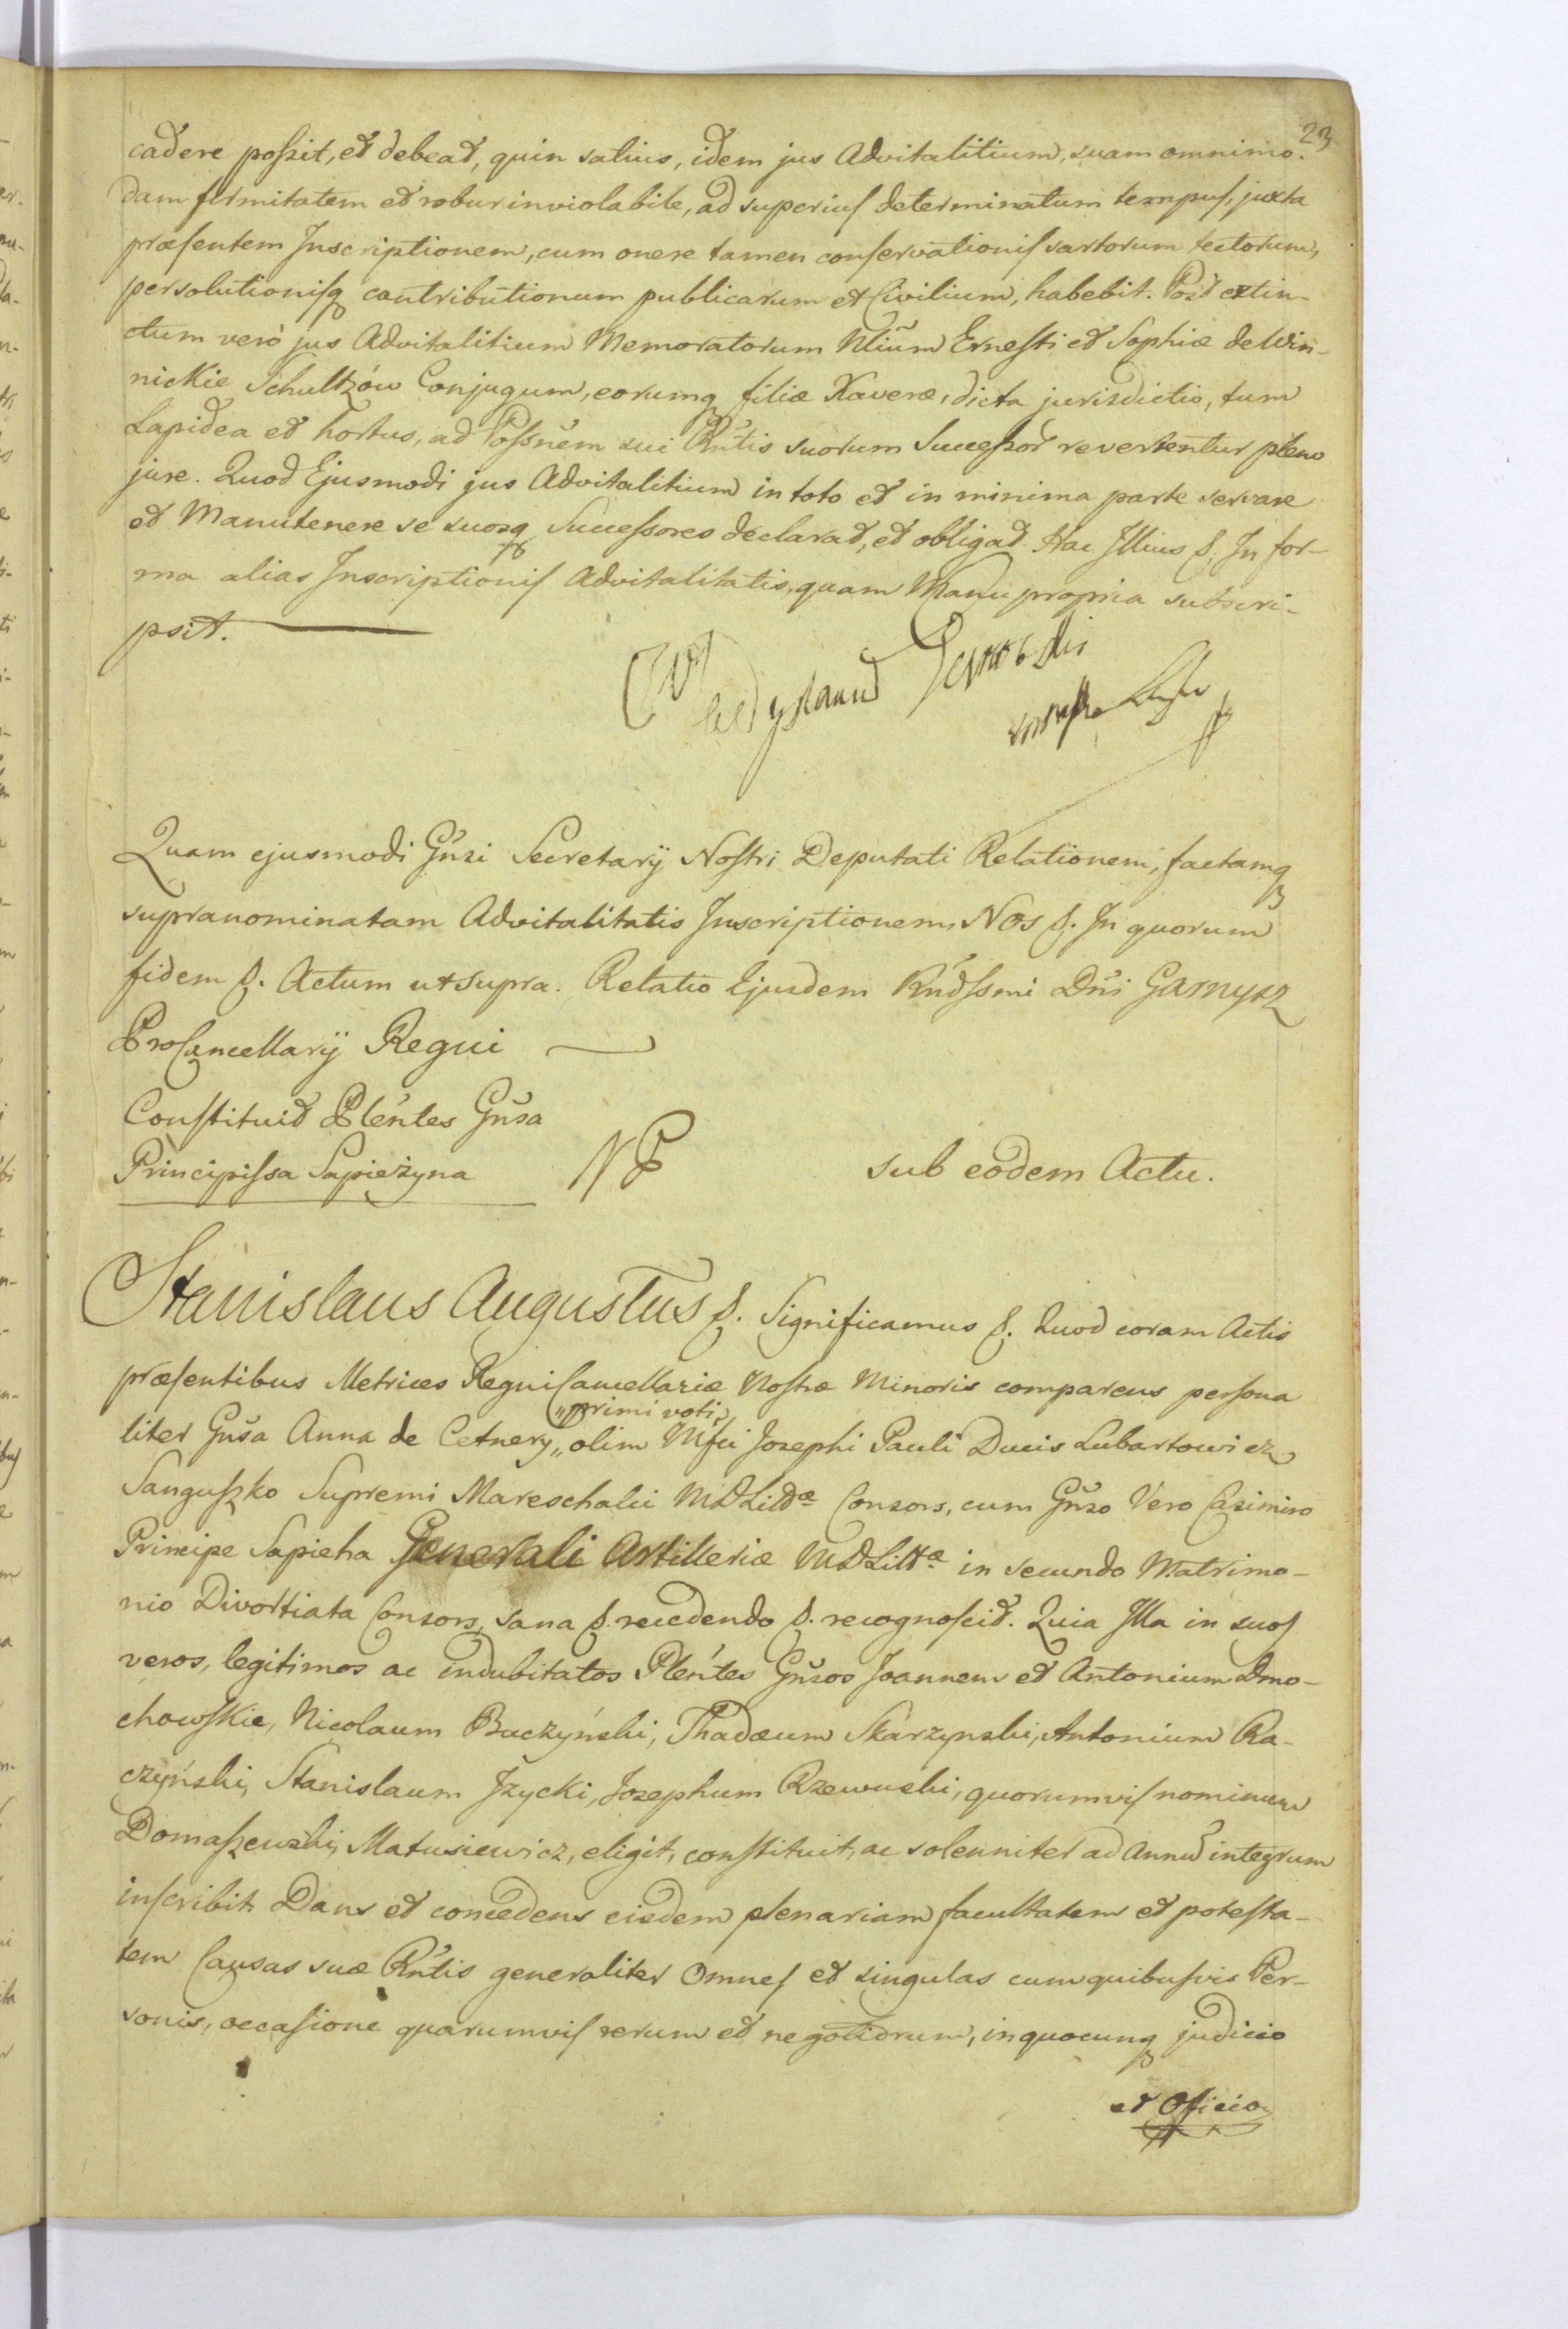 23
cadere possit, et debeat, quin satius, idem jus Advitalitium, suam omnimo-
dam firmitatem et robur inviolabile, ad superius determinatum tempus, juxta
præsentem Inscriptionem, cum onere tamen conservationis sartorum tectorum,
persolutionisq contributionum publicarum et Civilium, habebit. Post extin-
ctum verò jus Advitalitium Memoratorum Ernesti et Sophiæ de Win-
nickie Schultzów Conjugum, eorumq filiæ Xaveræ, dicta jurisdictio, tum
Lapidea et hortus, ad Possnem sui Rntis suorum Successor revertentur pleno
jure. Quod Ejusmodi jus Advitalitium in toto et in minima parte servare
et Manutenere se suosq Successores declarat, et obligat. Hac Illius &. In for-
ma alias Inscriptionis Advitalitatis, quam Manu propria subscri-
psit.
Quam ejusmodi Gnsi Secretarÿ Nostri Deputati Relationem, factamq
supranominatam Advitalitatis Inscriptionem, Nos &. In quorum
fidem &. Actum ut supra. Relatio Ejusdem Rndssmi Dni Garnysz
ProCancellarÿ Regni
Constituit Plentes Gnsa
Principissa Sapieżyna NP sub eodem Actu.
Stanislaus Augustus &. Significamus &. Quod coram Actis
præsentibus Metrices Regni Cancellariæ Nostræ Minoris comparens persona
„primi voti
liter Gnsa Anna de Cetnery„ olim Mfci Josephi Pauli Ducis Lubartowicz
Sanguszko Supremi Mareschalci MDLittæ Consors, cum Gnso Vero Casimiro
Principe Sapieha Generali Artilleriæ MDLittæ in secundo Matrimo-
nio Divortiata Consors, sana &. recedendo &. recognoscit. Quia Illa in suos
veros, legitimos ac indubitatos Plentes Gnsos Joannem et Antonium Dmo-
chowskie, Nicolaum Buczyński, Thadæum Skarzynski, Antonium Ra-
czyński, Stanislaum Jzycki, Josephum Rzewuski, quorumvis nominum
Domaszewski, Matusiewicz, eligit, constituit, ac solenniter ad Annū integrum
inscribit. Dans et concedens eisdem plenariam facultatem et potesta-
tem Causas suæ Rntis generaliter Omnes et singulas cum quibusvis Per-
sonis, occasione quarumvis rerum et negotiorum, in quocunq judicio
et Oficio